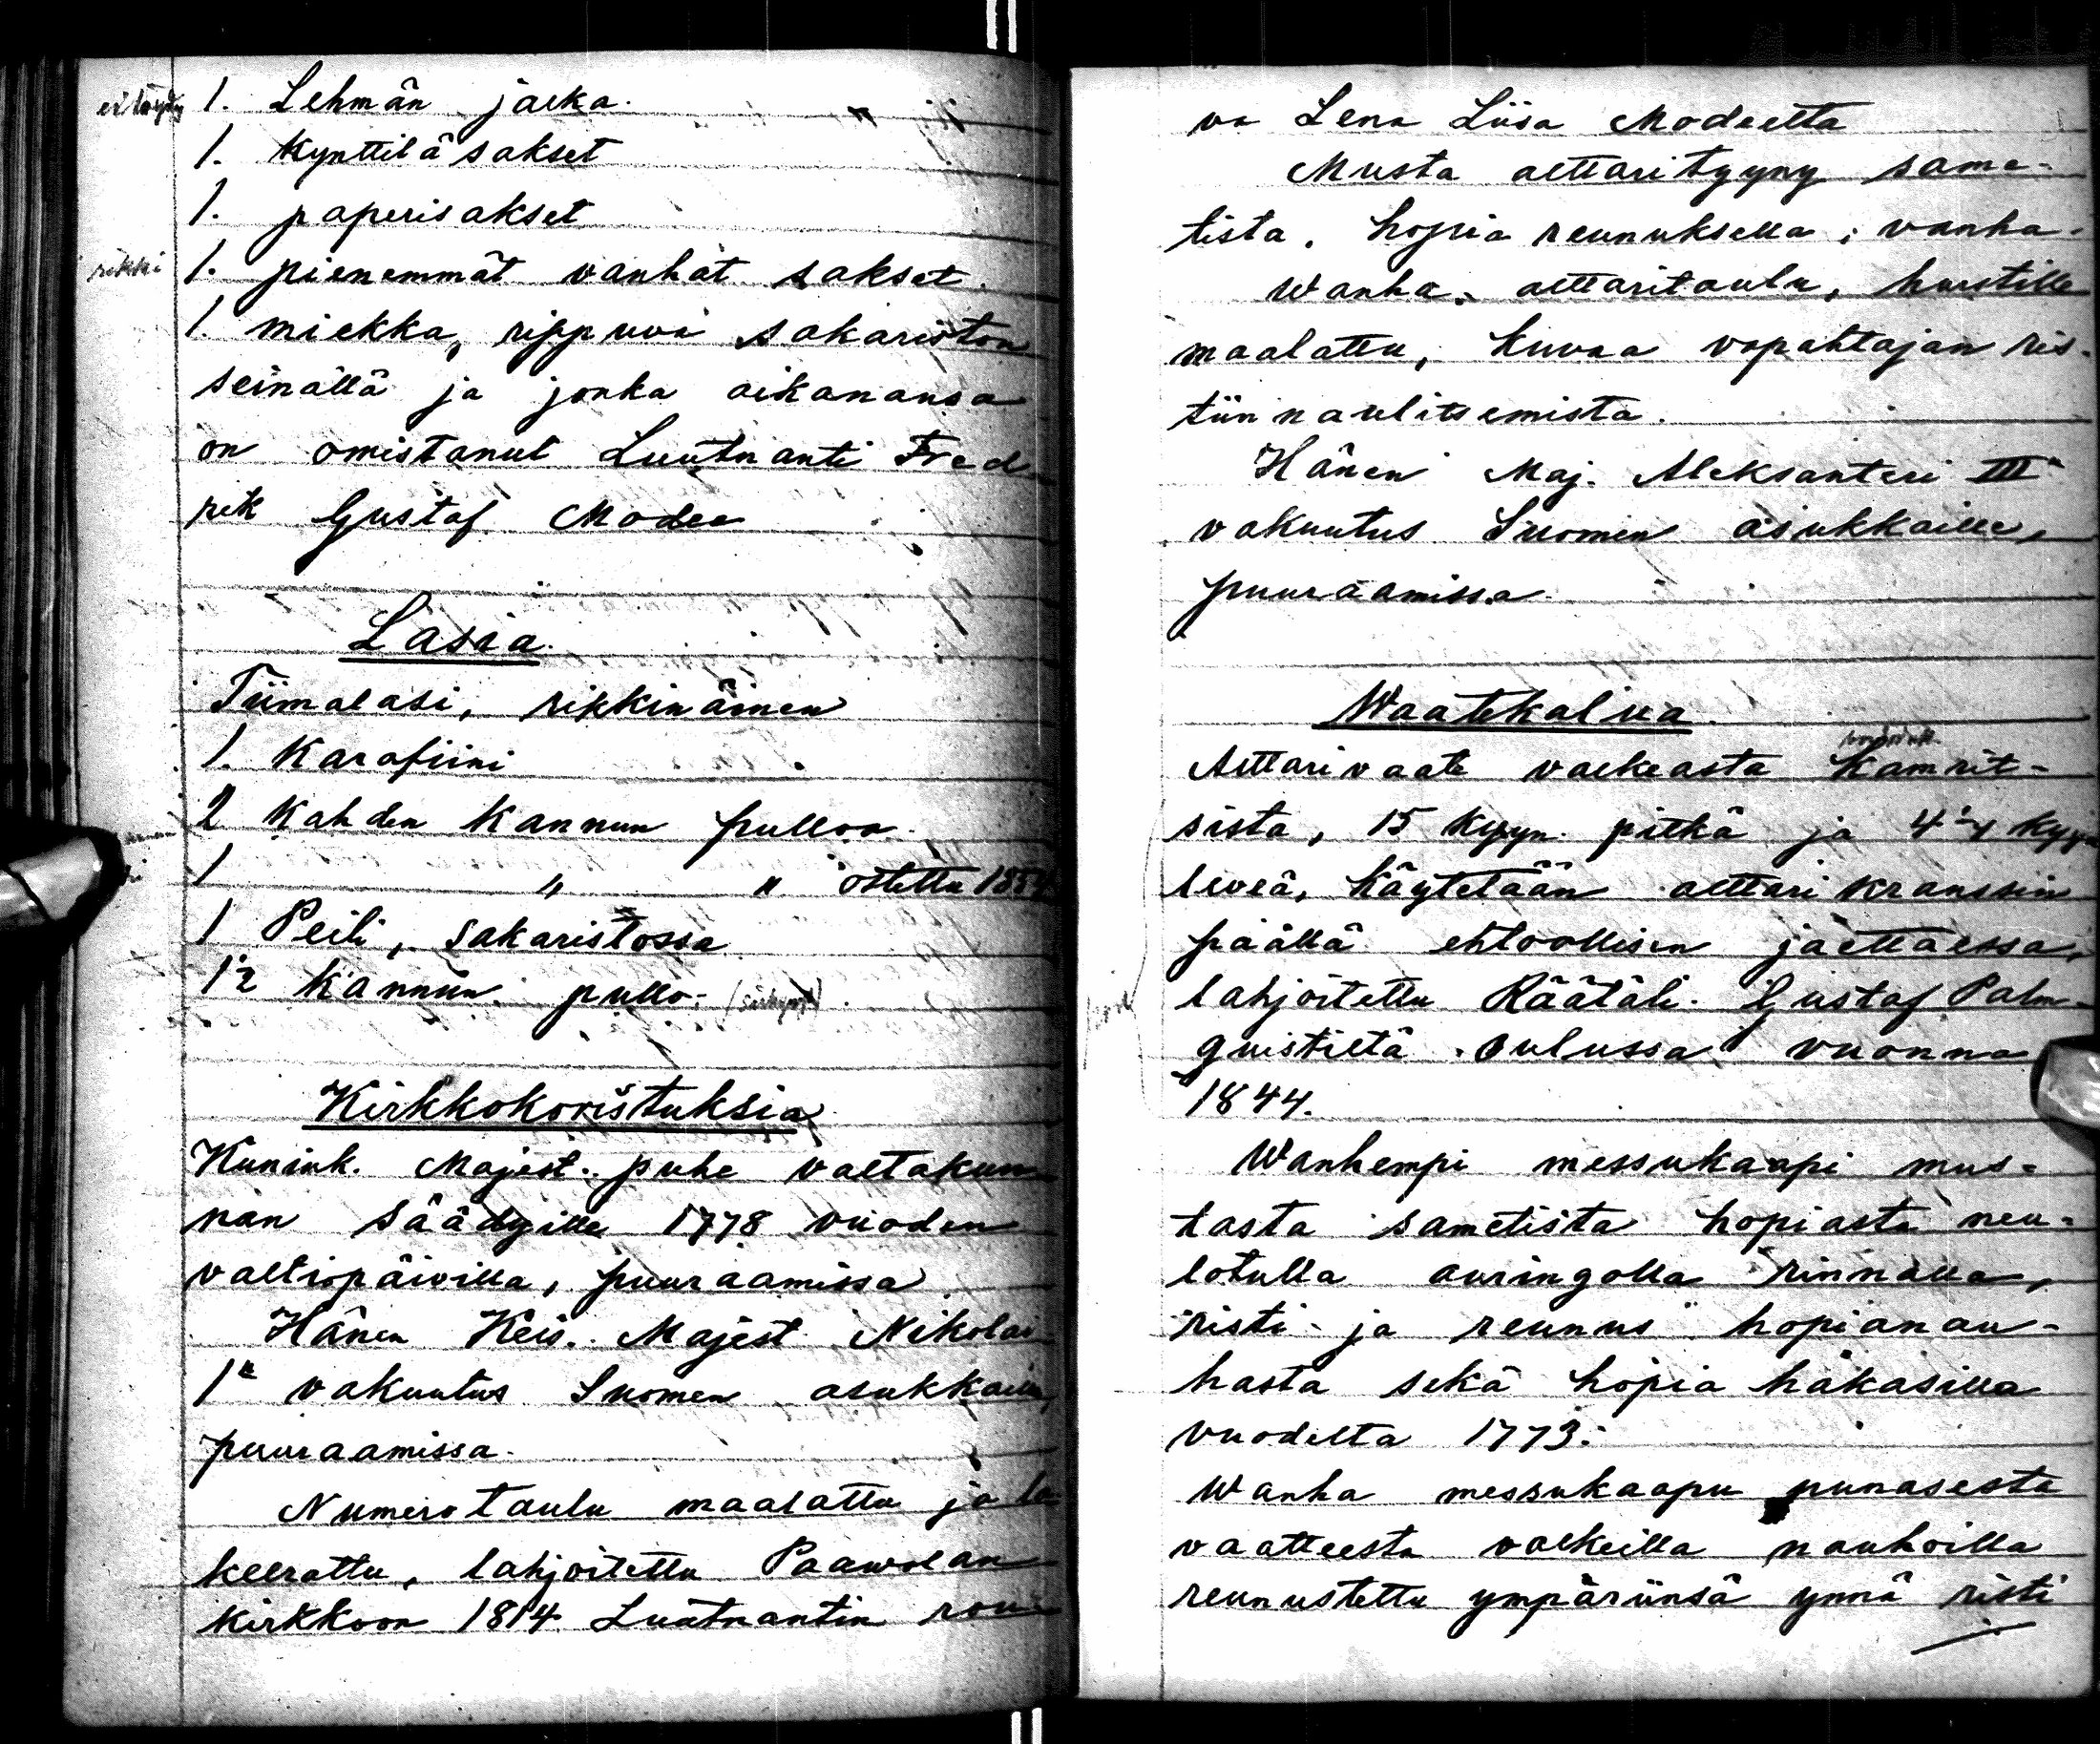 ei löydy 1. Lehmän jalka.
1. Kynttiläsakset
1. paperisakset
rikki 1. pienemmät vanhat sakset.
1. miekka, rippuva sakariston
seinällä ja jonka aikanansa
on omistanut Luutnanti Fred
rik Gustaf Modee
Lasia.
Tiimalasi, rikkinäinen
1. Karafiini
2 Kahden Kannun pulloa.
1 " " ostettu 1854
1 Peili, sakaristossa
1 2 Kannun pullo. (särkynyt)
Kirkkokoristuksia
Kunink. Majest. puhe valtakun
nan Säädyille 1778 vuoden
valtiopäivillä, puuraamissa
Hänen Keis. Majest. Nikolai
1n vakuutus Suomen asukkaille,
puuraamissa.
Numerotaulu maalattu ja la
keerattu, lahjoitettu Paawolan
kirkkoon 1814 Luutnantin rou
va Lena Liisa Modeelta
Musta alttarityyny same-
tista, hopia reunuksella; vanha.
Wanha alttaritaulu, hurstille
maalattu, kuvaa vapahtajan ris-
tiinnaulitsemista.
Hänen Maj. Aleksanteri III
vakuutus Suomen asukkaille,
puuraamissa.
Waatekalua.
Alttarivaate valkeasta Kamrit-
sista, 15 Kyyn. pitkä ja Kyyn
leveä, Käytetään alttari kranssin
päällä ehtoollisen jaettaessa,
lahjoitettu Räätäli Gustaf Palm-
quistiltä Oulussa vuonna
1844.
Wanhempi messukaapi mus-
tasta sametista hopiasta neu-
lotulla auringolla rinnalla,
risti- ja reunus hopianau-
hasta sekä hopia hakasilla
vuodelta 1773.
Wanha messukaapu punasesta
vaatteesta valkeilla nauhoilla
reunustettu ympäriinsä ynnä risti